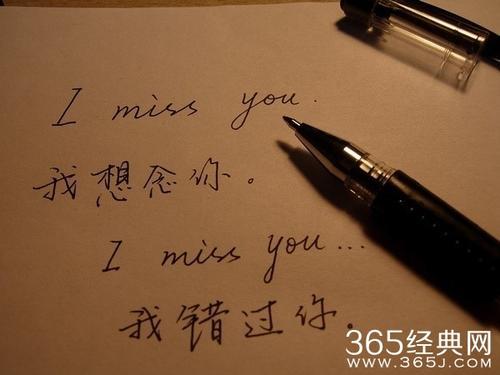 I miss you.
我想念你。
I miss you...
我错过你.
365经典网
WWW.365J.COM